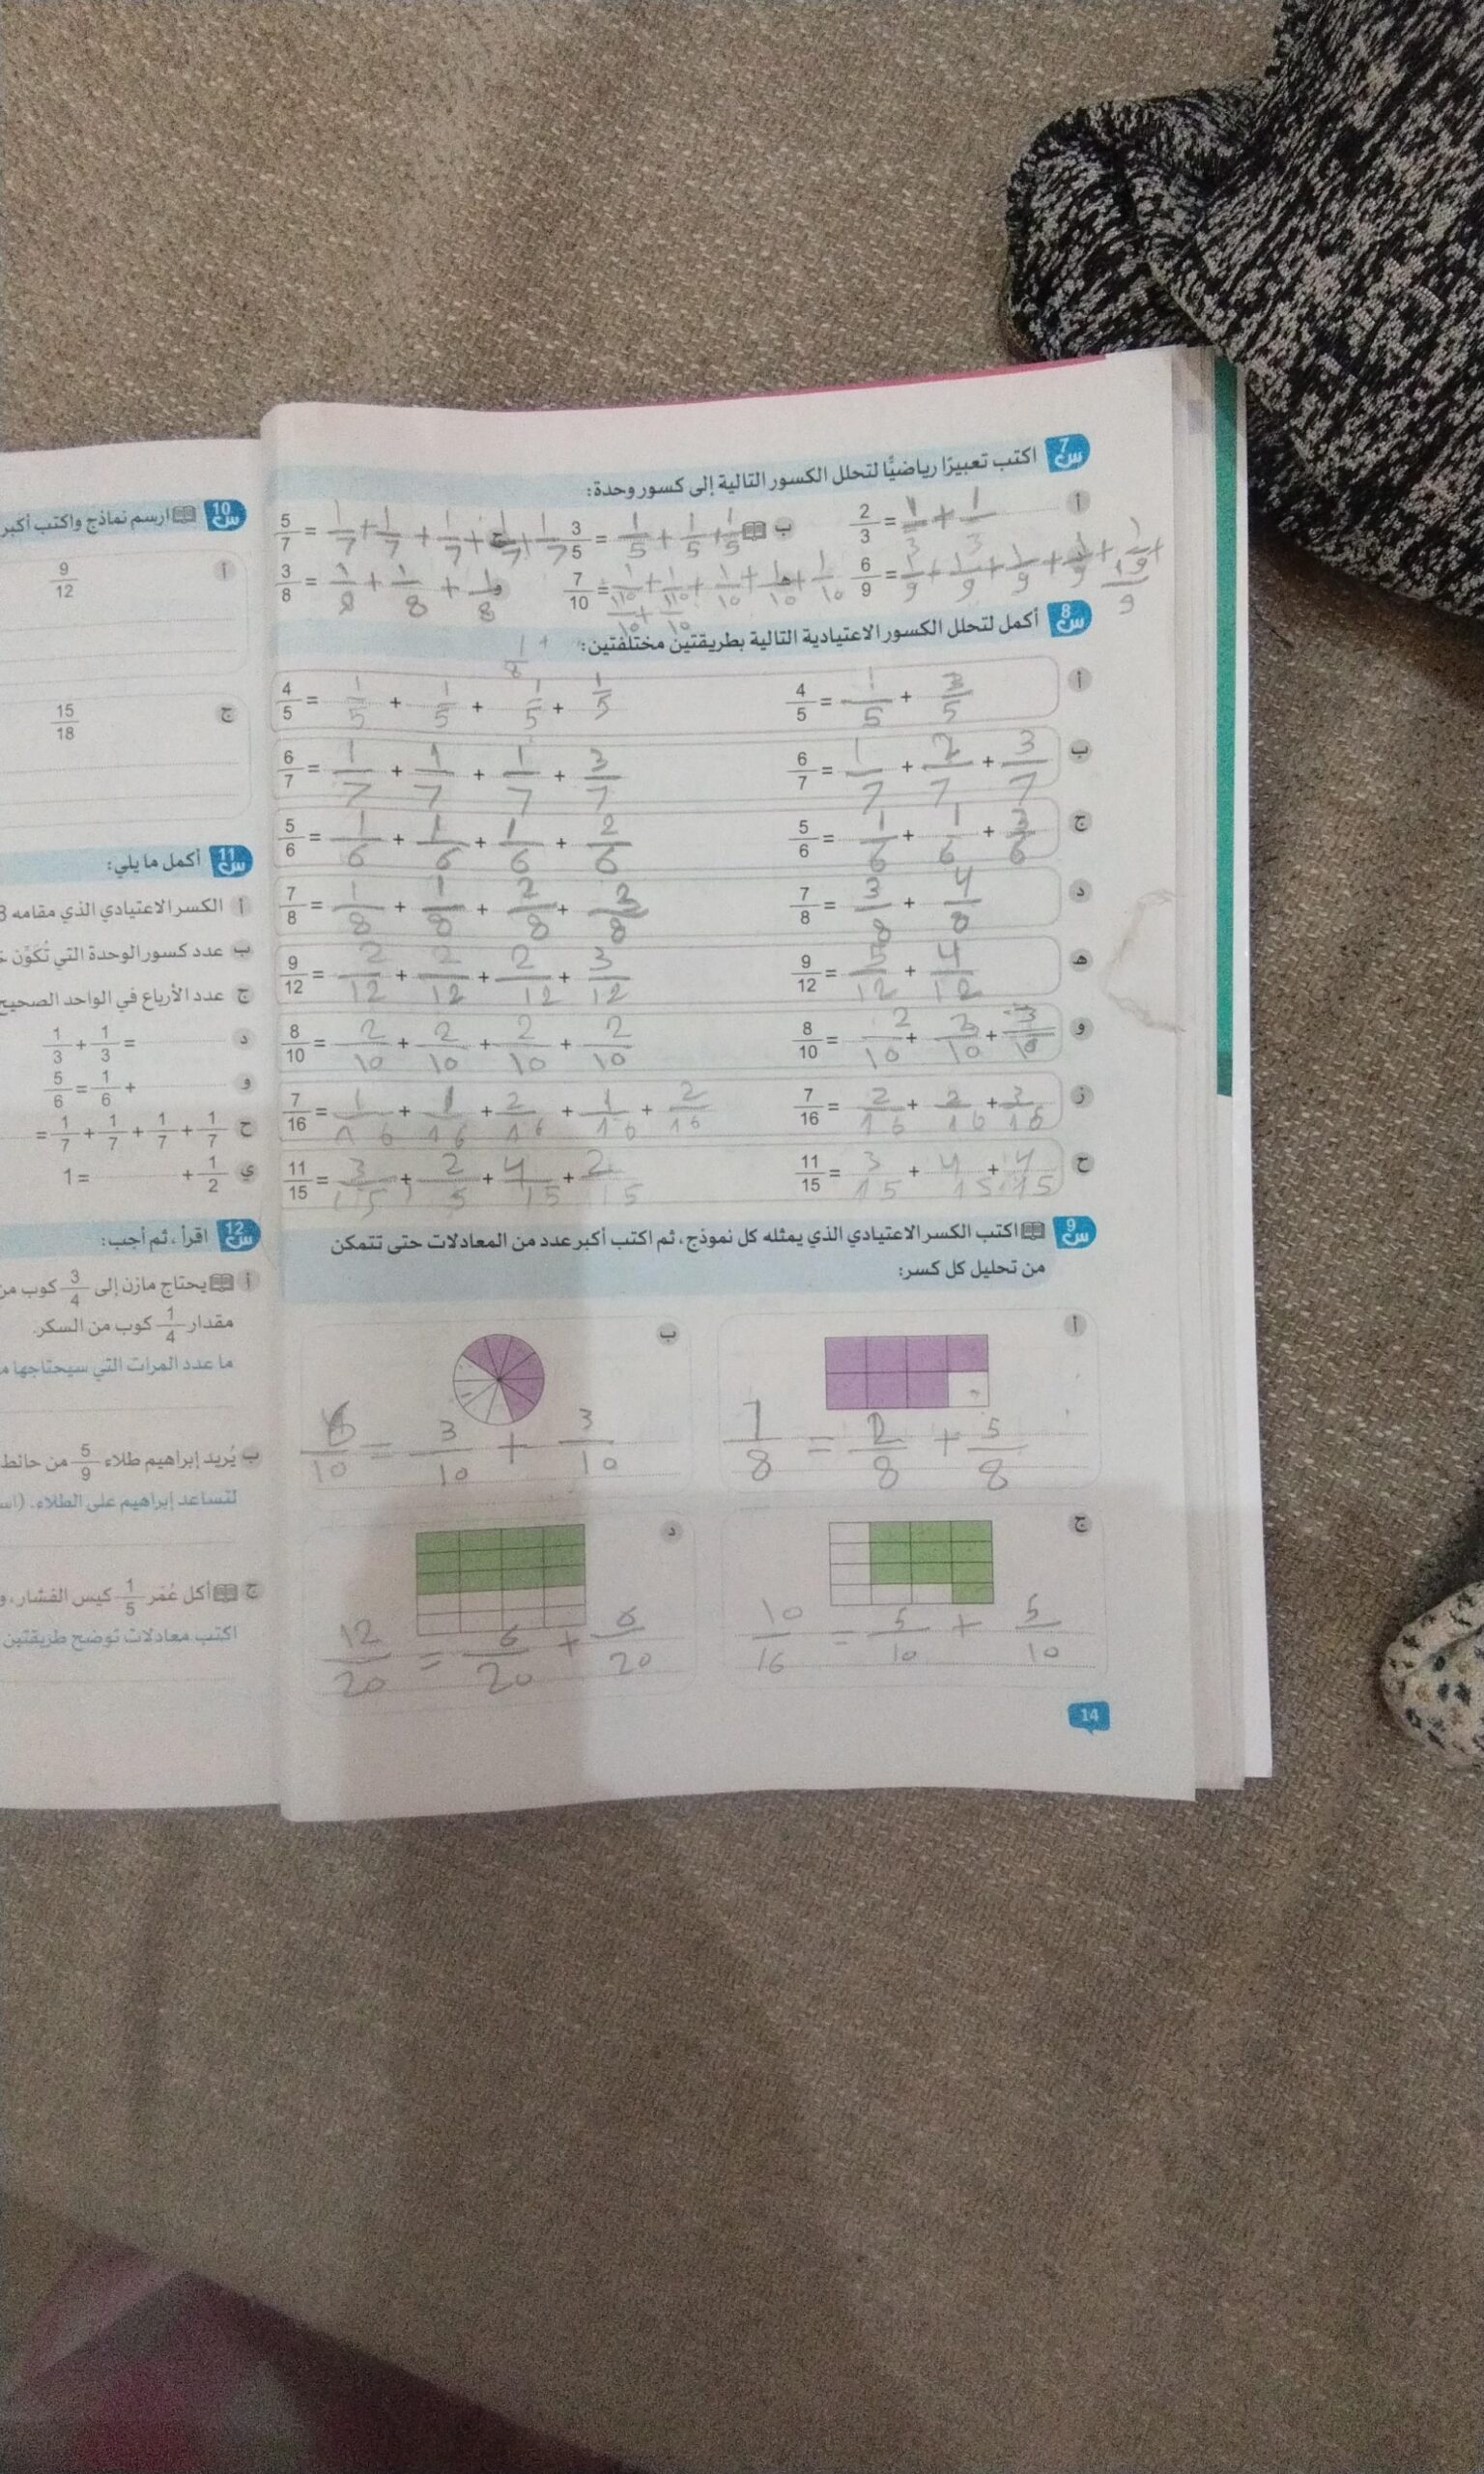 س7 اكتب تعبيرًا رياضيًّا لتحلل الكسور التالية إلى كسور وحدة:
أ 2/3 = 1/3 + 1/3
ب 3/5 = 1/5 + 1/5 + 1/5
ج 5/7 = 1/7 + 1/7 + 1/7 + 1/7 + 1/7
6/9 = 1/9 + 1/9 + 1/9 + 1/9 + 1/9 + 1/9
7/10 = 1/10 + 1/10 + 1/10 + 1/10 + 1/10
1/10 + 1/10
3/8 = 1/8 + 1/8 + 1/8
س8 أكمل لتحلل الكسور الاعتيادية التالية بطريقتين مختلفتين:
أ 4/5 = 1/5 + 3/5
4/5 = 1/5 + 1/5 + 1/5 + 1/5
ب 6/7 = 1/7 + 2/7 + 3/7
6/7 = 1/7 + 1/7 + 1/7 + 3/7
ج 5/6 = 1/6 + 1/6 + 3/6
5/6 = 1/6 + 1/6 + 1/6 + 2/6
د 7/8 = 3/8 + 4/8
7/8 = 1/8 + 1/8 + 2/8 + 3/8
هـ 9/12 = 5/12 + 4/12
9/12 = 2/12 + 2/12 + 2/12 + 3/12
و 8/10 = 2/10 + 3/10 + 3/10
8/10 = 2/10 + 2/10 + 2/10 + 2/10
ز 7/16 = 2/16 + 2/16 + 3/16
7/16 = 1/16 + 1/16 + 2/16 + 1/16 + 2/16
ح 11/15 = 3/15 + 4/15 + 4/15
11/15 = 3/15 + 2/15 + 4/15 + 2/15
س9 اكتب الكسر الاعتيادي الذي يمثله كل نموذج، ثم اكتب أكبر عدد من المعادلات حتى تتمكن
من تحليل كل كسر:
أ
7/8 = 2/8 + 5/8
ب
6/10 = 3/10 + 3/10
ج
10/16 = 5/10 + 5/10
د
12/20 = 6/20 + 6/20
14
س10 ارسم نماذج واكتب أكبر
أ 9/12
ج 15/18
س11 أكمل ما يلي:
أ الكسر الاعتيادي الذي مقامه 8
ب عدد كسور الوحدة التي تُكوِّن
ج عدد الأرباع في الواحد الصحيح
د 1/3 + 1/3 =
و 5/6 = 1/6 +
ح 1/7 + 1/7 + 1/7 + 1/7 =
ي 1/2 + = 1
س12 اقرأ، ثم أجب:
أ يحتاج مازن إلى 3/4 كوب من
مقدار 1/4 كوب من السكر.
ما عدد المرات التي سيحتاجها
ب يُريد إبراهيم طلاء 5/9 من حائط
لتساعد إبراهيم على الطلاء.
ج أكل عُمَر 1/5 كيس الفشار، و
اكتب معادلات توضح طريقتين